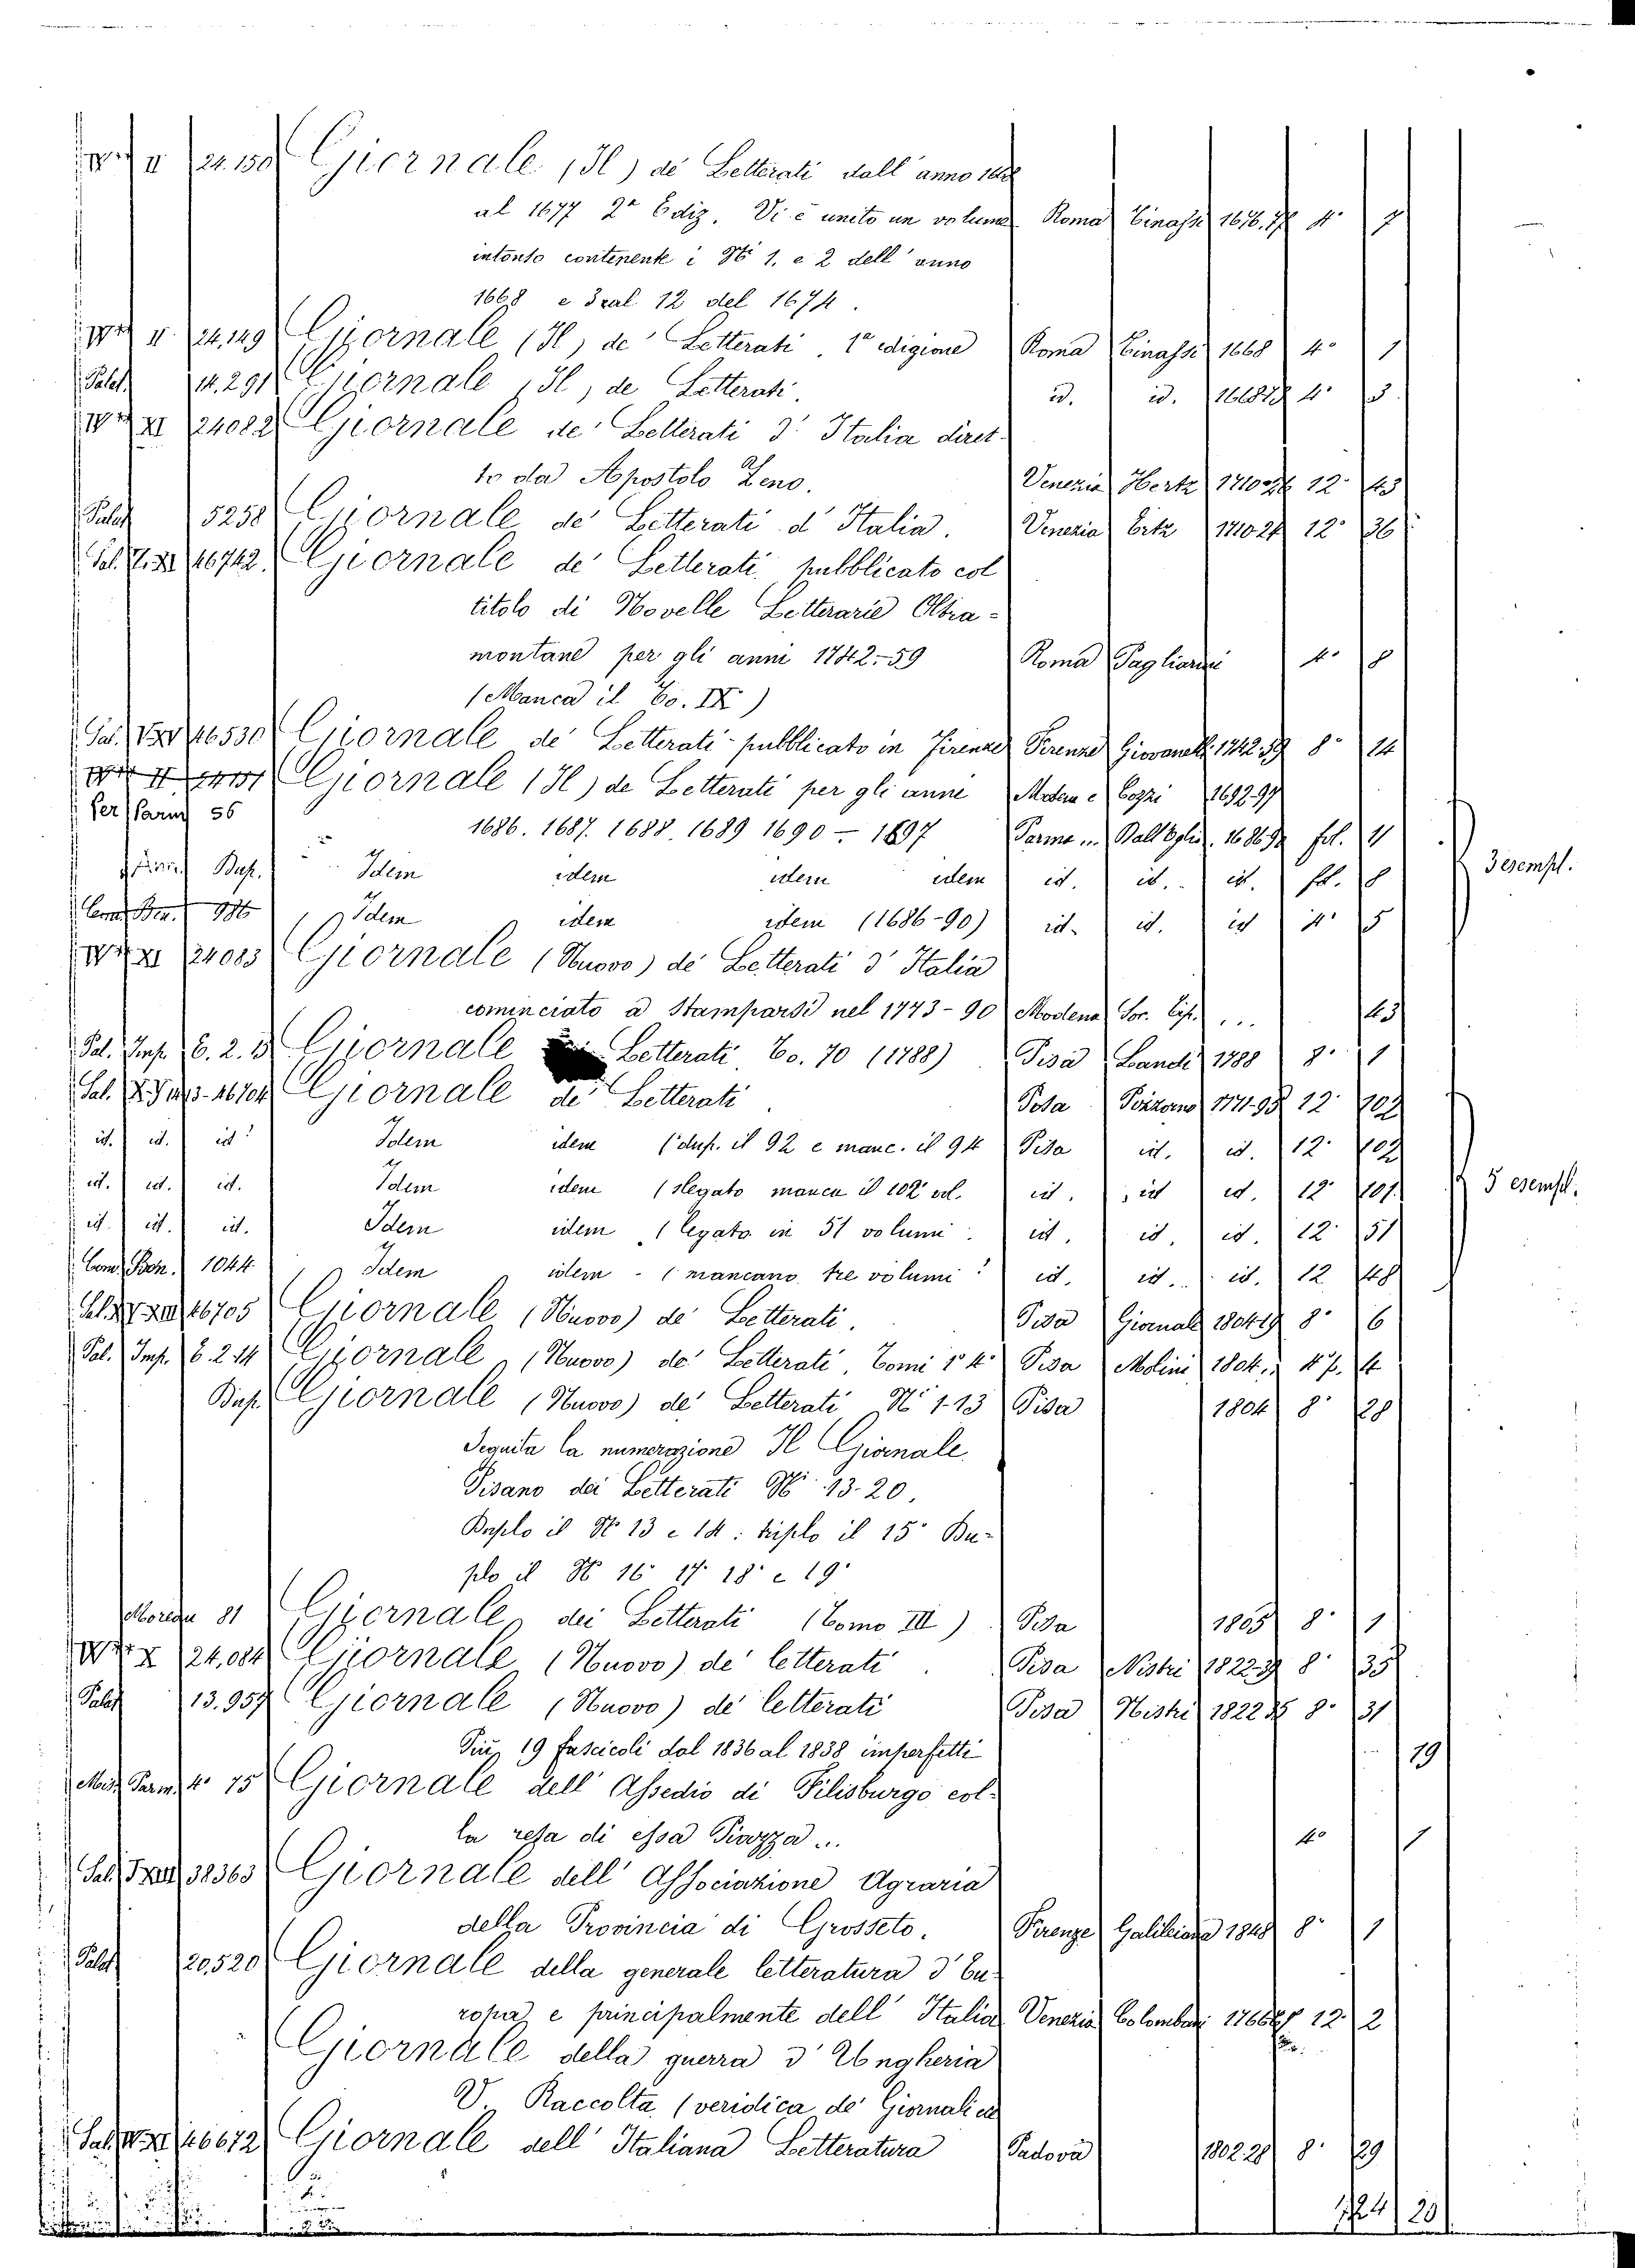 II 24.150 Giornale (Il) de' Letterati dall' anno
al 1677 2ª Ediz. Vi è unito un volume Roma Tinassi 1676.77 4° 7
intonso contenente i Nⁱ 1. e 2 dell' anno
1668 e 3 al 12 del 1674.
II. 24.149 Giornale (Il) de' Letterati. 1ª edizione Roma Tinassi 1668 4° 1
Palat. 14.291 Giornale (Il) de Letterati. id. id. 4° 3
XI 24082 Giornale de' Letterati d' Italia diret-
to da Apostolo Zeno. Venezia Hertz 12° 43
Palat. 5258 Giornale de' Letterati d' Italia. Venezia Ertz 1710-27 12° 36
16742. Giornale de' Letterati pubblicato col
titolo di Novelle Letterarie Oltra-
montane per gli anni 1742-59 Roma Pagliarini 4° 8
(Manca il To. IX)
16530 Giornale de' Letterati pubblicato in Firenze Firenze Giovanelli 1742.59 8° 24
II Giornale (Il) de Letterati per gli anni Modena e Cozzi 1692-97
Parm 56
1686. 1687. 1688. 1689 1690 - 1697 Parma fol. 4
Idem idem idem idem id. id. id. 8
986 Idem idem idem (1686-90) id. id. id 4° 5
XI 24083 Giornale (Nuovo) de' Letterati d' Italia
cominciato a Stamparsi nel 1773-90 Modena Soc. Tip. ... 43
Pal. Imp. 6. 2. Giornale Letterati To. 70 (1788) Pisa Landi 1788 8° 1
Giornale de' Letterati Pisa Pizzorno 1771-95 12° 102
id. id. id. Idem idem (dup. il 92 e manc. il 94 Pisa id. id. 12° 102
id. id. id. Idem idem (slegato manca il 102 vol. id. id id. 12° 101
id. id. id. Idem idem (legato in 51 volumi id. id. id. 12° 51
1044 Idem idem - (mancano tre volumi id. id. id. 12 48
16705 Giornale (Nuovo) de' Letterati. Pisa Giornale 1804-19 8° 6
Pal. Imp. 6. 2. 14 Giornale (Nuovo) de' Letterati, Tomi 1° 4° Pisa Molini 1804 4
Giornale (Nuovo) de' Letterati Nⁱ 1-13 Pisa 1804 8° 28
Seguita la numerazione Il Giornale
Pisano dei Letterati Nⁱ 13-20.
Duplo il Nº 13 e 14: triplo il 15° Du-
plo il Nº 16° 17° 18° e 19°
Moreau 81 Giornale dei Letterati (Tomo III) Pisa 1805 8° 1
X 24.084 Giornale (Nuovo) de' letterati Pisa Nistri 1822-39 8° 35
Palat 13.957 Giornale (Nuovo) de' letterati Pisa Nistri 1822 8° 31
Più 19 fascicoli dal 1836 al 1838 imperfetti 19
Parm. 4° 15 Giornale dell' Assedio di Filisburgo col-
la resa di essa Piazza ... 4° 1
38363 Giornale dell' Associazione Agraria
della Provincia di Grosseto. Firenze Galileiana 1848 8° 1
Palat 20,520 Giornale della generale letteratura d' Eu-
ropa e principalmente dell' Italia Venezia Colombani 12 2
Giornale della guerra d' Ungheria
V. Raccolta (veridica de' Giornali
16672 Giornale dell' Italiana Letteratura Padova 1802.28 8° 29
3 esempl.
5 esempl.
724 20